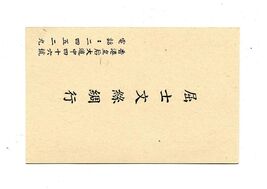 香港皇后大道中四十六號
電話：二四五二九
屈士文絲綢行